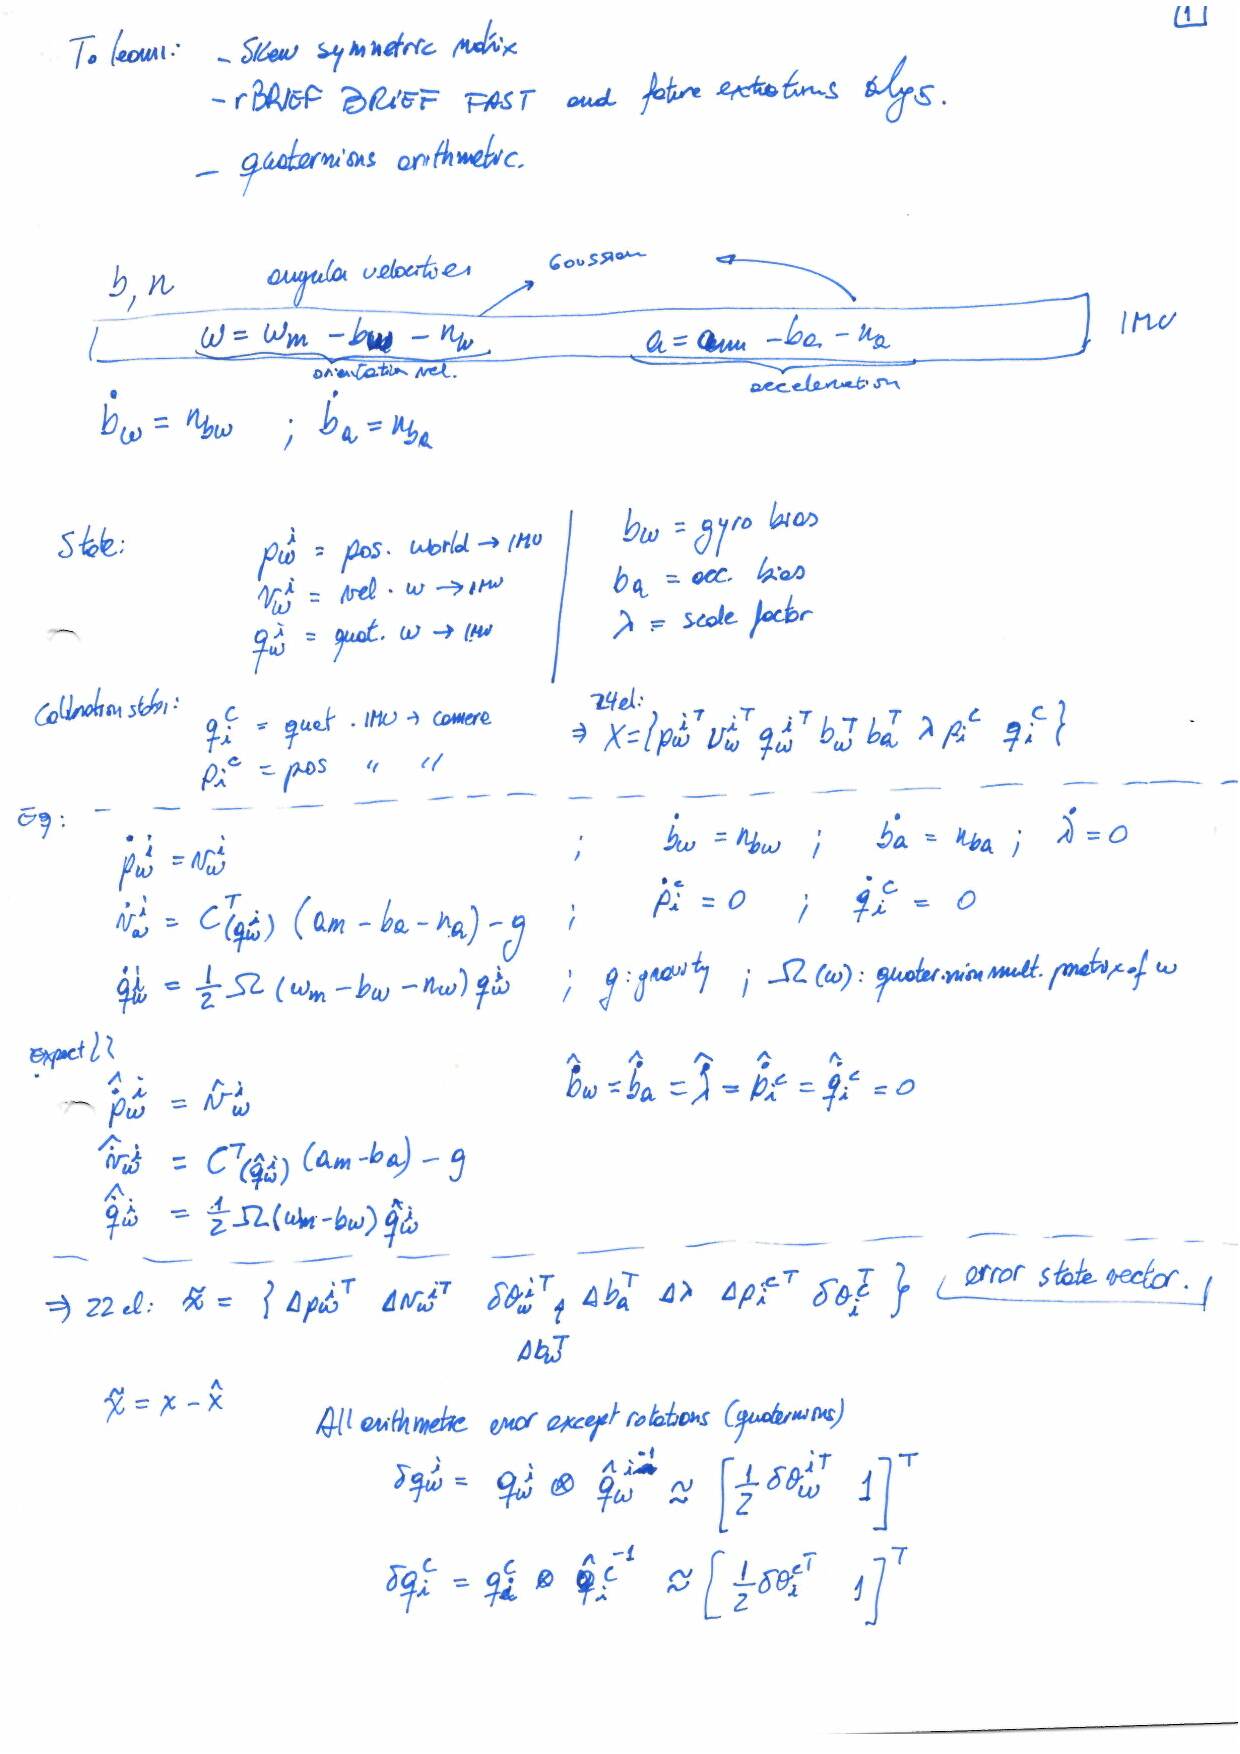 1
To learn: - Skew symmetric matrix
- rBRIEF BRIEF FAST and feature extractions algs.
- quaternions arithmetic.
b, n angular velocities Gaussian
ω = ωm - bω - nω a = am - ba - na IMU
orientation vel. acceleration
ḃω = nbω ; ḃa = nba
State: pωⁱ = pos. world → IMU bω = gyro bias
vωⁱ = vel. w → IMU ba = acc. bias
qωⁱ = quat. w → IMU λ = scale factor
Calibration states: qᵢᶜ = quat. IMU → camera 24 el:
⇒ X = {pωⁱᵀ vωⁱᵀ qωⁱᵀ bωᵀ baᵀ λ pᵢᶜ qᵢᶜ}
pᵢᶜ = pos " "
Eq:
ṗωⁱ = vωⁱ ; ḃω = nbω ; ḃa = nba ; λ̇ = 0
v̇ωⁱ = Cᵀ(qωⁱ) (am - ba - na) - g ; ṗᵢᶜ = 0 ; q̇ᵢᶜ = 0
q̇ωⁱ = 1/2 Ω (ωm - bω - nω) qωⁱ ; g : gravity ; Ω(ω) : quaternion mult. matrix of ω
expect
p̂̇ωⁱ = v̂ωⁱ b̂̇ω = b̂̇a = λ̂̇ = p̂̇ᵢᶜ = q̂̇ᵢᶜ = 0
v̂̇ωⁱ = Cᵀ(q̂ωⁱ) (am - ba) - g
q̂̇ωⁱ = 1/2 Ω(ωm - bω) q̂ωⁱ
⇒ 22 el: x̃ = { Δpωⁱᵀ Δvωⁱᵀ δθωⁱᵀ Δbaᵀ Δλ Δpᵢᶜᵀ δθᵢᶜᵀ } error state vector.
Δbωᵀ
x̃ = x - x̂
All arithmetic error except rotations (quaternions)
δqωⁱ = qωⁱ ⊗ q̂ωⁱ⁻¹ ≈ [1/2 δθωⁱᵀ 1]ᵀ
δqᵢᶜ = qᵢᶜ ⊗ q̂ᵢᶜ⁻¹ ≈ [1/2 δθᵢᶜᵀ 1]ᵀ